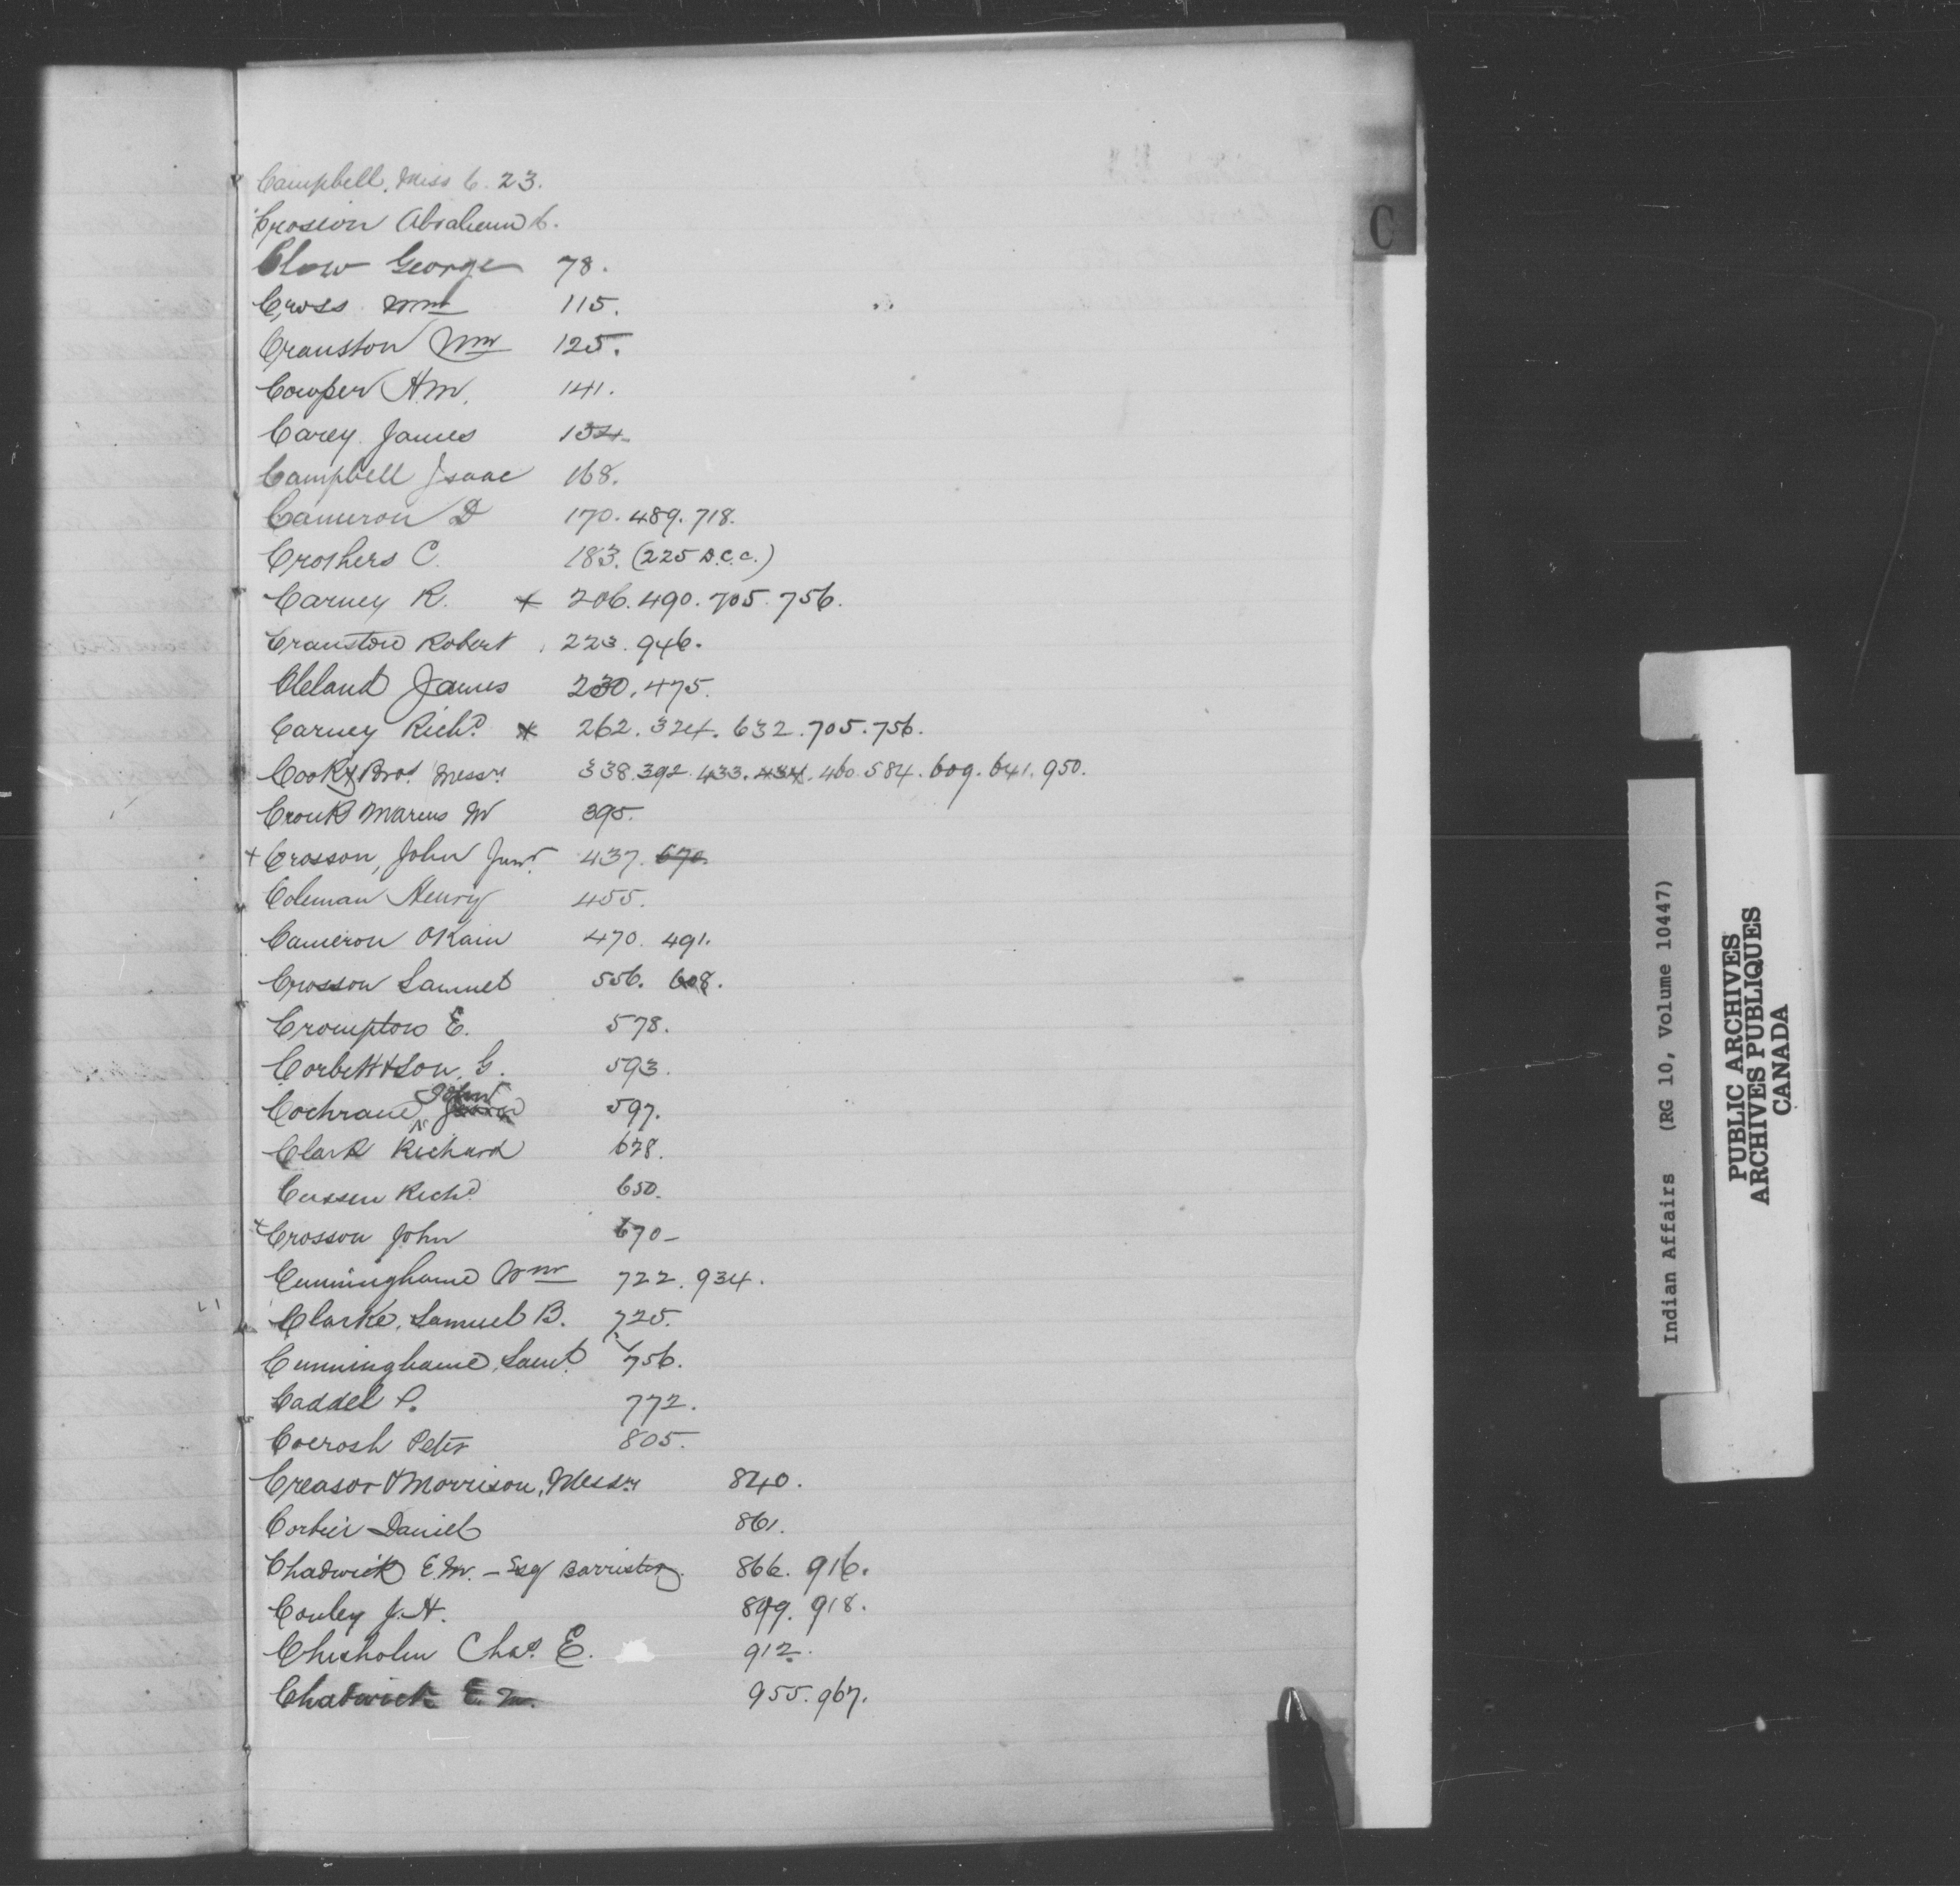 C
Campbell, Miss C. 23.
Crosson Abraham 6.
Clow George 78.
Cross Wm 115.
Cranston Wm 125.
Cowper H.M. 141.
Carey James 134
Campbell Isaac 168.
Cameron D 170. 489. 718.
Crothers C. 183. (225 D.C.C.)
Carney R. x 206. 490. 705. 756.
Cranston Robert 223. 946.
Cleland James 230. 475.
Carney Richd x 262. 324. 632. 705. 756.
Cook & Bros Messrs 338. 392. 433. 434. 460. 584. 609. 641. 950.
Cronk Marcus W 395.
+ Crosson, John Junr 437. 670.
Coleman Henry 455.
Cameron OKain 470. 491.
Crosson Samuel 556. 608.
Crompton E. 578.
Corbett & Son, G. 593.
Cochrane, John 597.
Clark Richard 628.
Cussen Richd 650.
+ Crosson John 670-
Cunninghame Wm 722. 934.
Clarke, Samuel B. 725.
Cunninghame, Saml 756.
Caddel P. 772.
Cocrosh Peter 805.
Creasor & Morrison, Messrs 840.
Corbier Daniel 861.
Chadwick E.M. - Esq Barrister. 866. 916.
Conley J.H. 899. 918.
Chisholm Chas. E. 912.
Chadwick E. M. 955. 967.
Indian Affairs (RG 10, Volume 10447)
PUBLIC ARCHIVES
ARCHIVES PUBLIQUES
CANADA